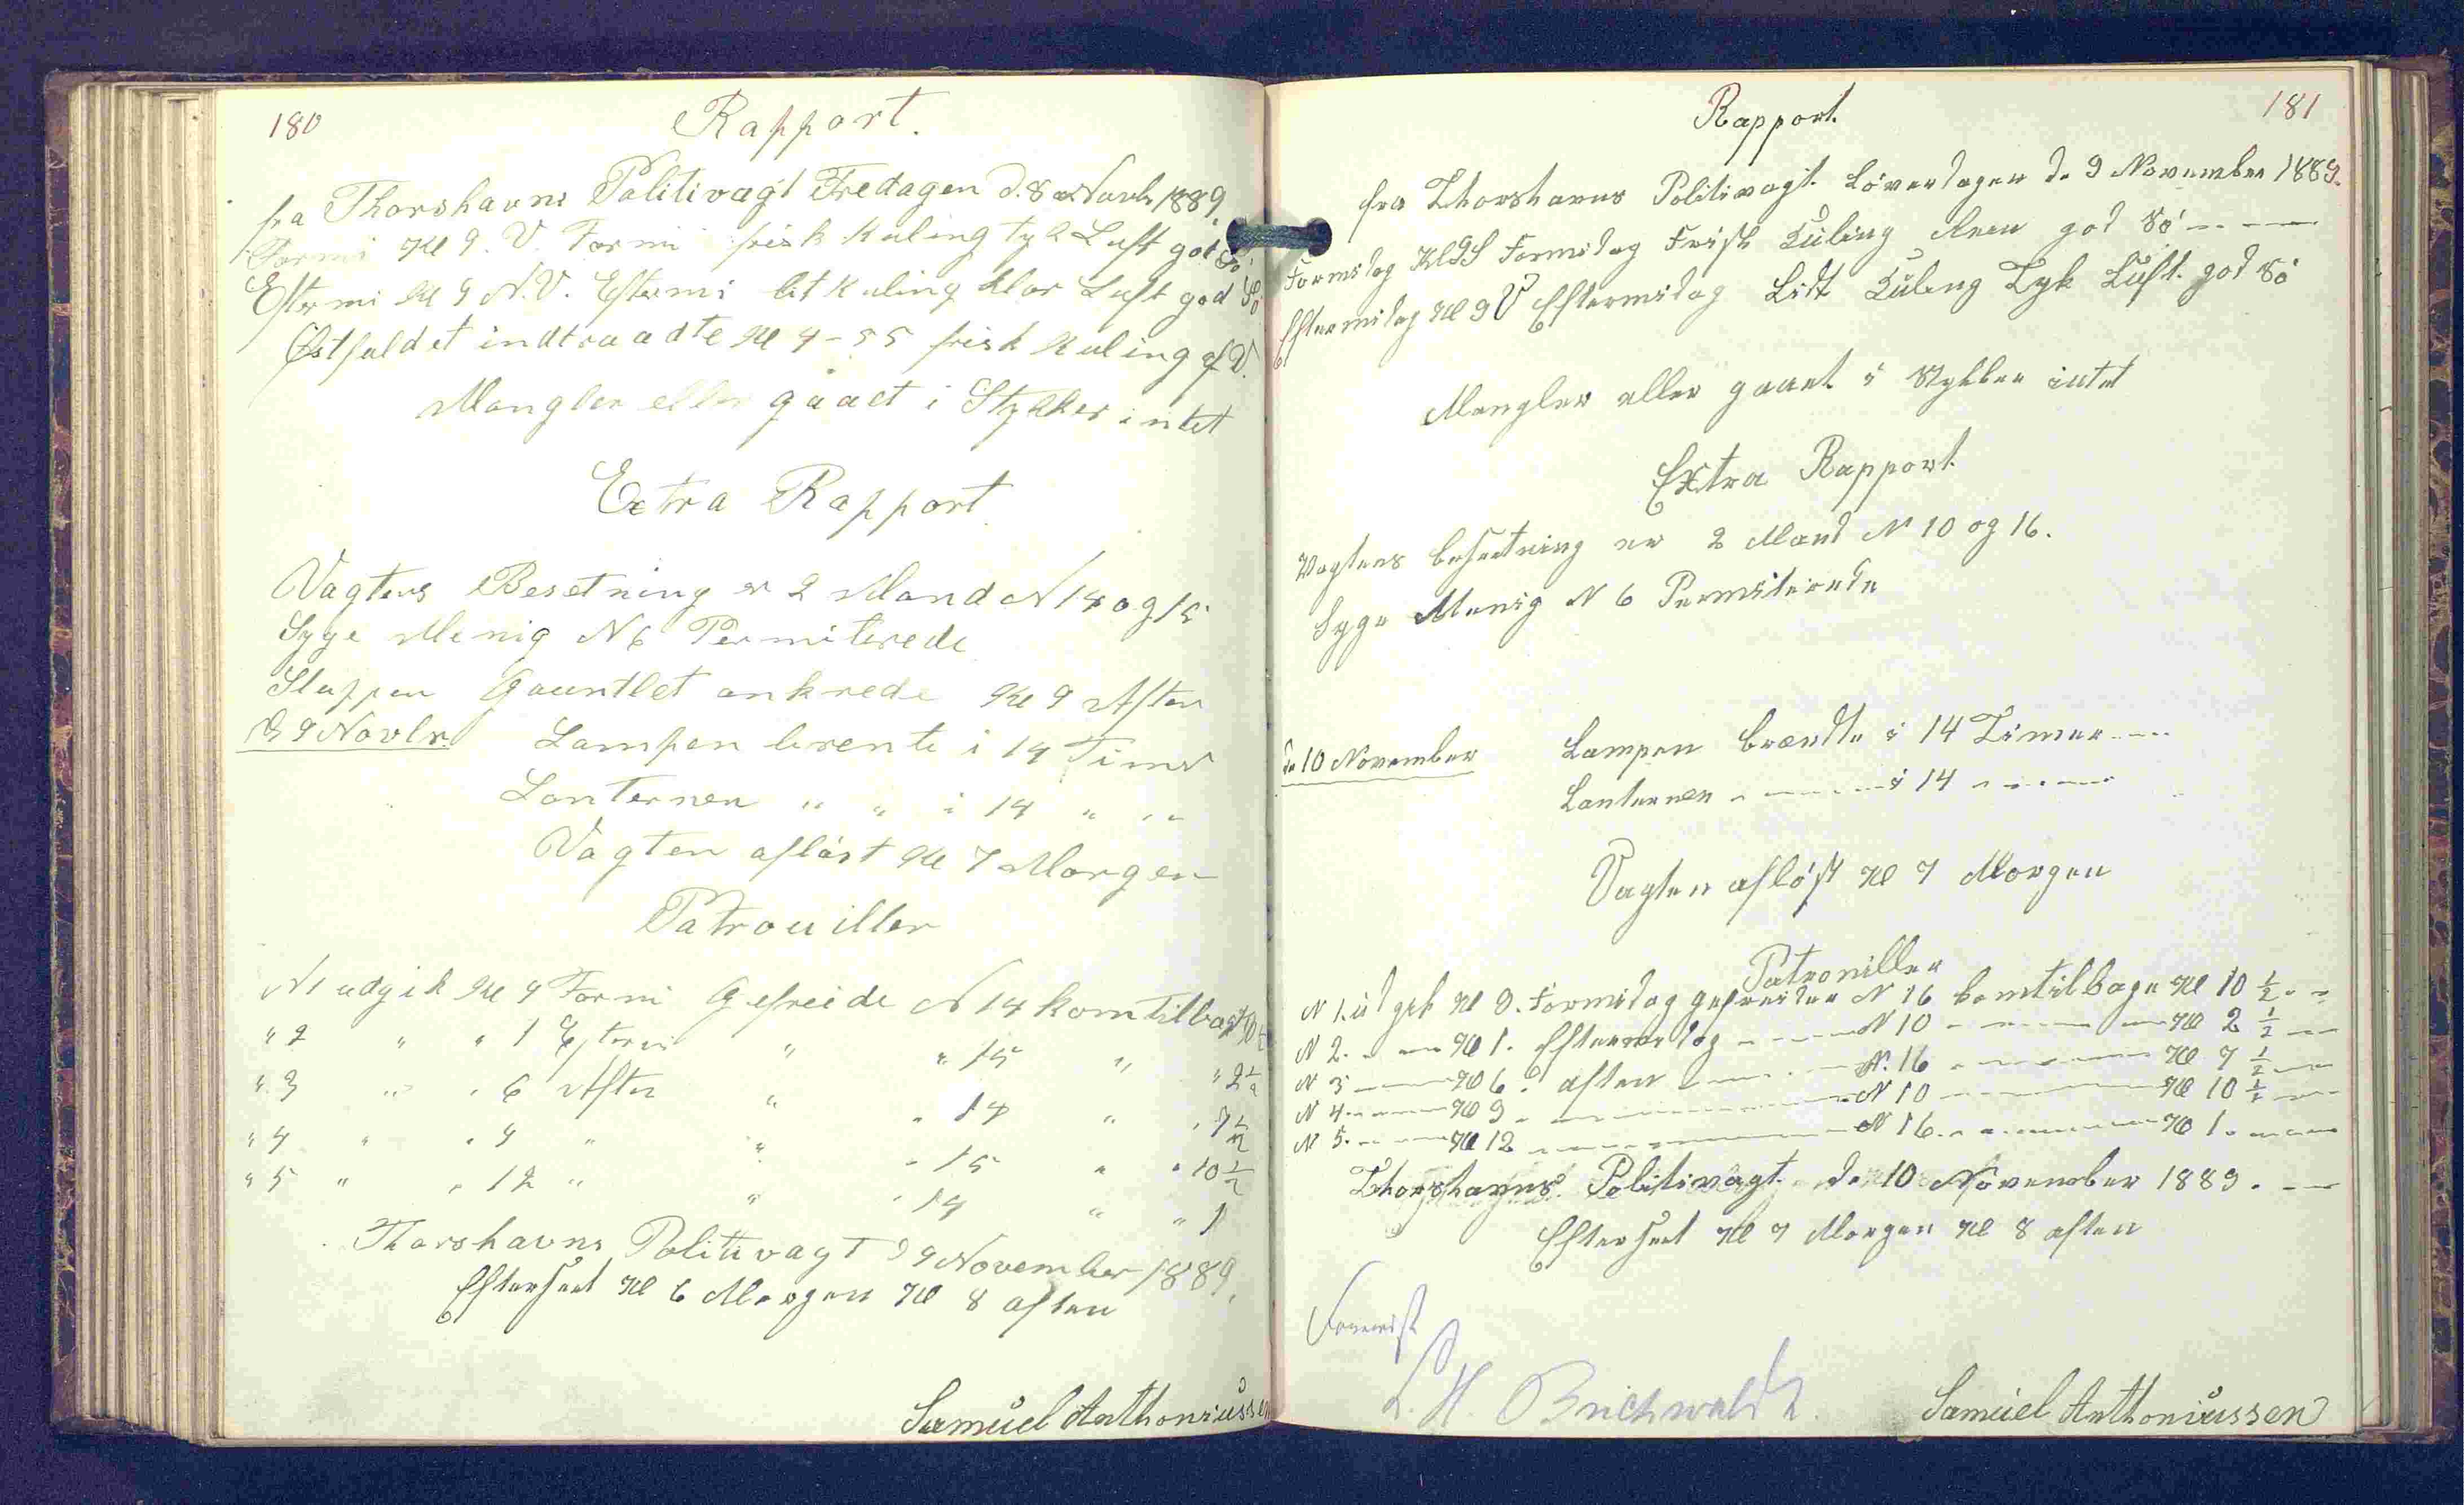 180
Rapport.
fra Thorshavns Politivagt Fredagen d. 8 Novbr 1889.
Formi Kl 9. V. Formi frisk Kuling tyk Luft god Sö
Eftermi Kl 9 N.V. Eftermi lit Kuling klar Luft god Sö
Østfaldet indtraadte Kl 4-55 frisk Kuling af V.
Mangler eller gaaet i Stykker intet
Extra Rapport
Vagtens Besetning er 2 Mand N 14 og 15
Syge Menig N 6 Permiterede
Sluppen Gauntlet ankrede Kl 9 Aften
D 9 Novbr. Lampen brente i 14 Timer
Lanternen " " i 14 " "
Vagten afløst Kl 7 Morgen
Patrouiller
N 1 udgik Kl 9 Formi Gefreide N 14 kom tilbage 10 ½
" 2 " " 1 Eftermi " " 15 " " 2 ½
" 3 " " 6 Aften " " 14 " " 7 ½
" 4 " " 9 " " " 15 " " 10 ½
" 5 " " 12 " " " 14 " " 1
Thorshavns Politivagt D 9 November 1889.
Efterseet Kl 6 Morgen Kl 8 aften
Samuel Anthoniussen
181
Rapport.
fra Thorshavns Politivagt. Löverdagen d. 9 November 1889.
Formidag Kl 9 S Formidag Frisk Kuling Reen god Sö
Eftermidag Kl 9 V Eftermidag Lidt Kuling Tyk Luft. god Sö
Mangler eller gaaet i Stykker intet
Extra Rapport.
Vagtens besætning er 2 Mand N 10 og 16.
Syge Menig N 6 Permiterede
d. 10 November Lampen brændte i 14 Timer
Lanternen - - - i 14 - - -
Vagten afløst Kl 7 Morgen
Patrouiller
N 1. udgik Kl 9. Formidag gefreider N 16 kom tilbage Kl 10 ½
N 2. - - Kl 1. Eftermidag - - N 10 - - - Kl 2 ½
N 3 - - Kl 6. aften - - N. 16 - - - Kl 7 ½
N 4. - - Kl 9 - - - N 10 - - - Kl 10 ½
N 5. - - Kl 12 - - - N 16. - - - Kl 1.
Thorshavns. Politivagt. d. 10 November 1889.
Efterseet Kl 7 Morgen Kl 8 aften
L. H. Buchwaldt.
Samuel Anthoniussen